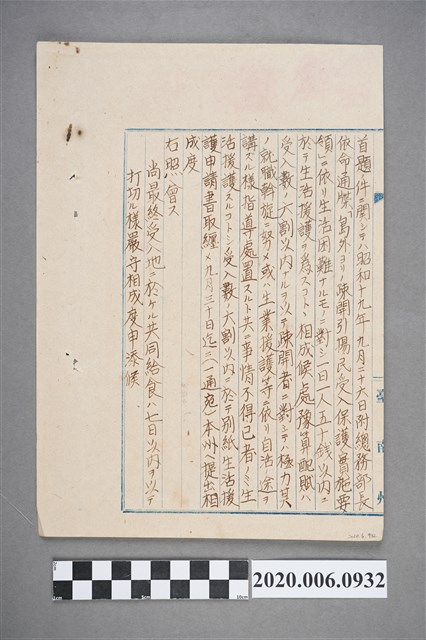 首題件ニ関シテハ昭和十九年九月二十六日附總務部長
依命通牒「島外ヨリノ疎開引揚民受入保護實施要
領」ニ依リ生活困難ナルモノニ對シ一日一人五十錢以内ニ
於テ生活援護ヲ為スコトニ相成候處豫算配賦ハ
受入數ノ六割以内ナルヲ以テ疎開者ニ對シテハ極力其
ノ就職斡旋ニ努メ或ハ生業援護等ニ依リ自活ノ途ヲ
講ズル様指導處置スルト共ニ事情不得已者ノミ生
活援護スルコトシ受入數ノ六割以内ニ於テ別紙生活援
護申請書取纏メ九月三十日迄ニ(一通宛)本州ヘ提出相
成度
右照會ス
尚最終受入地ニ於ケル共同給食ハ七日以内ヲ以テ
打切ル様嚴守相成度申添候
臺南州
2020.006.0932